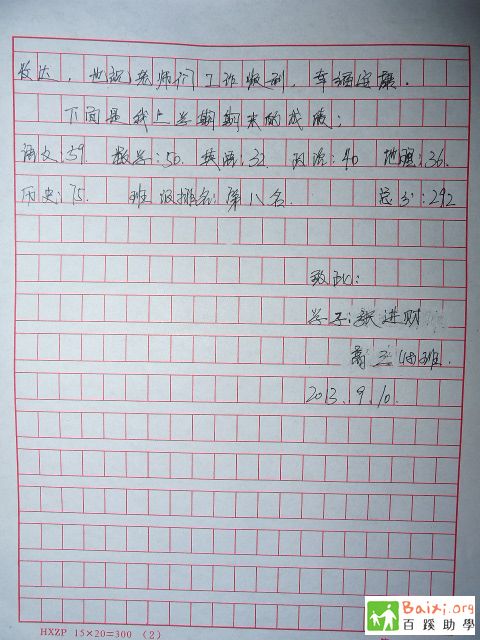 发达，也祝老师们工作顺利，幸福安康。
下面是我上学期期末的成绩：
语文：59 数学：50. 英语：32 政治：40 地理：36.
历史：75. 班级排名：第八名. 总分：292
致礼：
学子：张进财
高三(4)班.
2013.9.10.
HXZP 15×20=300 (2)
Baixi.org
百蹊助學